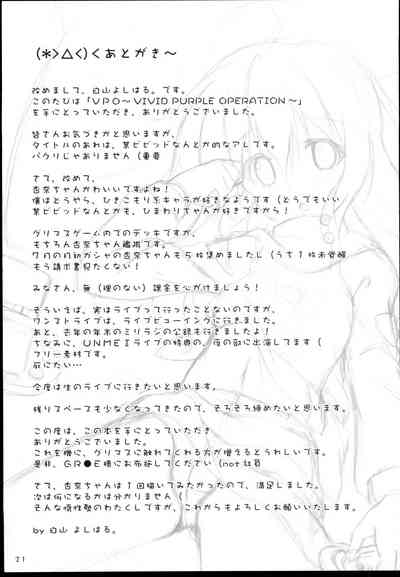 (*>△<)<あとがき～
改めまして、白山よしはる。です。
このたびは「VPO～VIVID PURPLE OPERATION～」
を手にとっていただき、ありがとうございました。
皆さんお気づきかと思いますが、
タイトルのあれは、某ビビッドなんとか的なアレです。
パクリじゃありません（重要
さて、改めて。
杏奈ちゃんかわいいですよね！
僕はどうやら、ひきこもり系キャラが好きなようです（どうでもいい
某ビビッドなんとかも、ひまわりちゃんが好きですから！
グリマスゲームの下のデッキですが、
もちろん杏奈ちゃん艦隊です。
7月の月初ガシャの杏奈ちゃんも5枚集めましたし（うち1枚未覚醒
もう請求書見たくない！
みなさん、無（理のない）課金を心がけましょう！
そういえば、実はライブって行ったことないのですが、
ファンストライブは、ライブビューイングに行きました。
あと、去年の年末のミリラジの公録も行きましたよ！
ちなみに、UNMEIライブの特典の、夜の部に出演してます（
フリー素材です。
死にたい…
今度は生のライブに行きたいと思います。
残りスペースも少なくなってきたので、そろそろ締めたいと思います。
この度は、この本を手にとっていただき
ありがとうございました。
これを機に、グリマスに触れてくれる方が増えるとうれしいです。
是非、GR●E様にお布施してください(not社員
さて、杏奈ちゃんは1回描いてみたかったので、満足しました。
次は何になるかは分かりません（
そんな惰性塾のわたくしですが、これからもよろしくお願いいたします。
by 白山 よしはる。
21